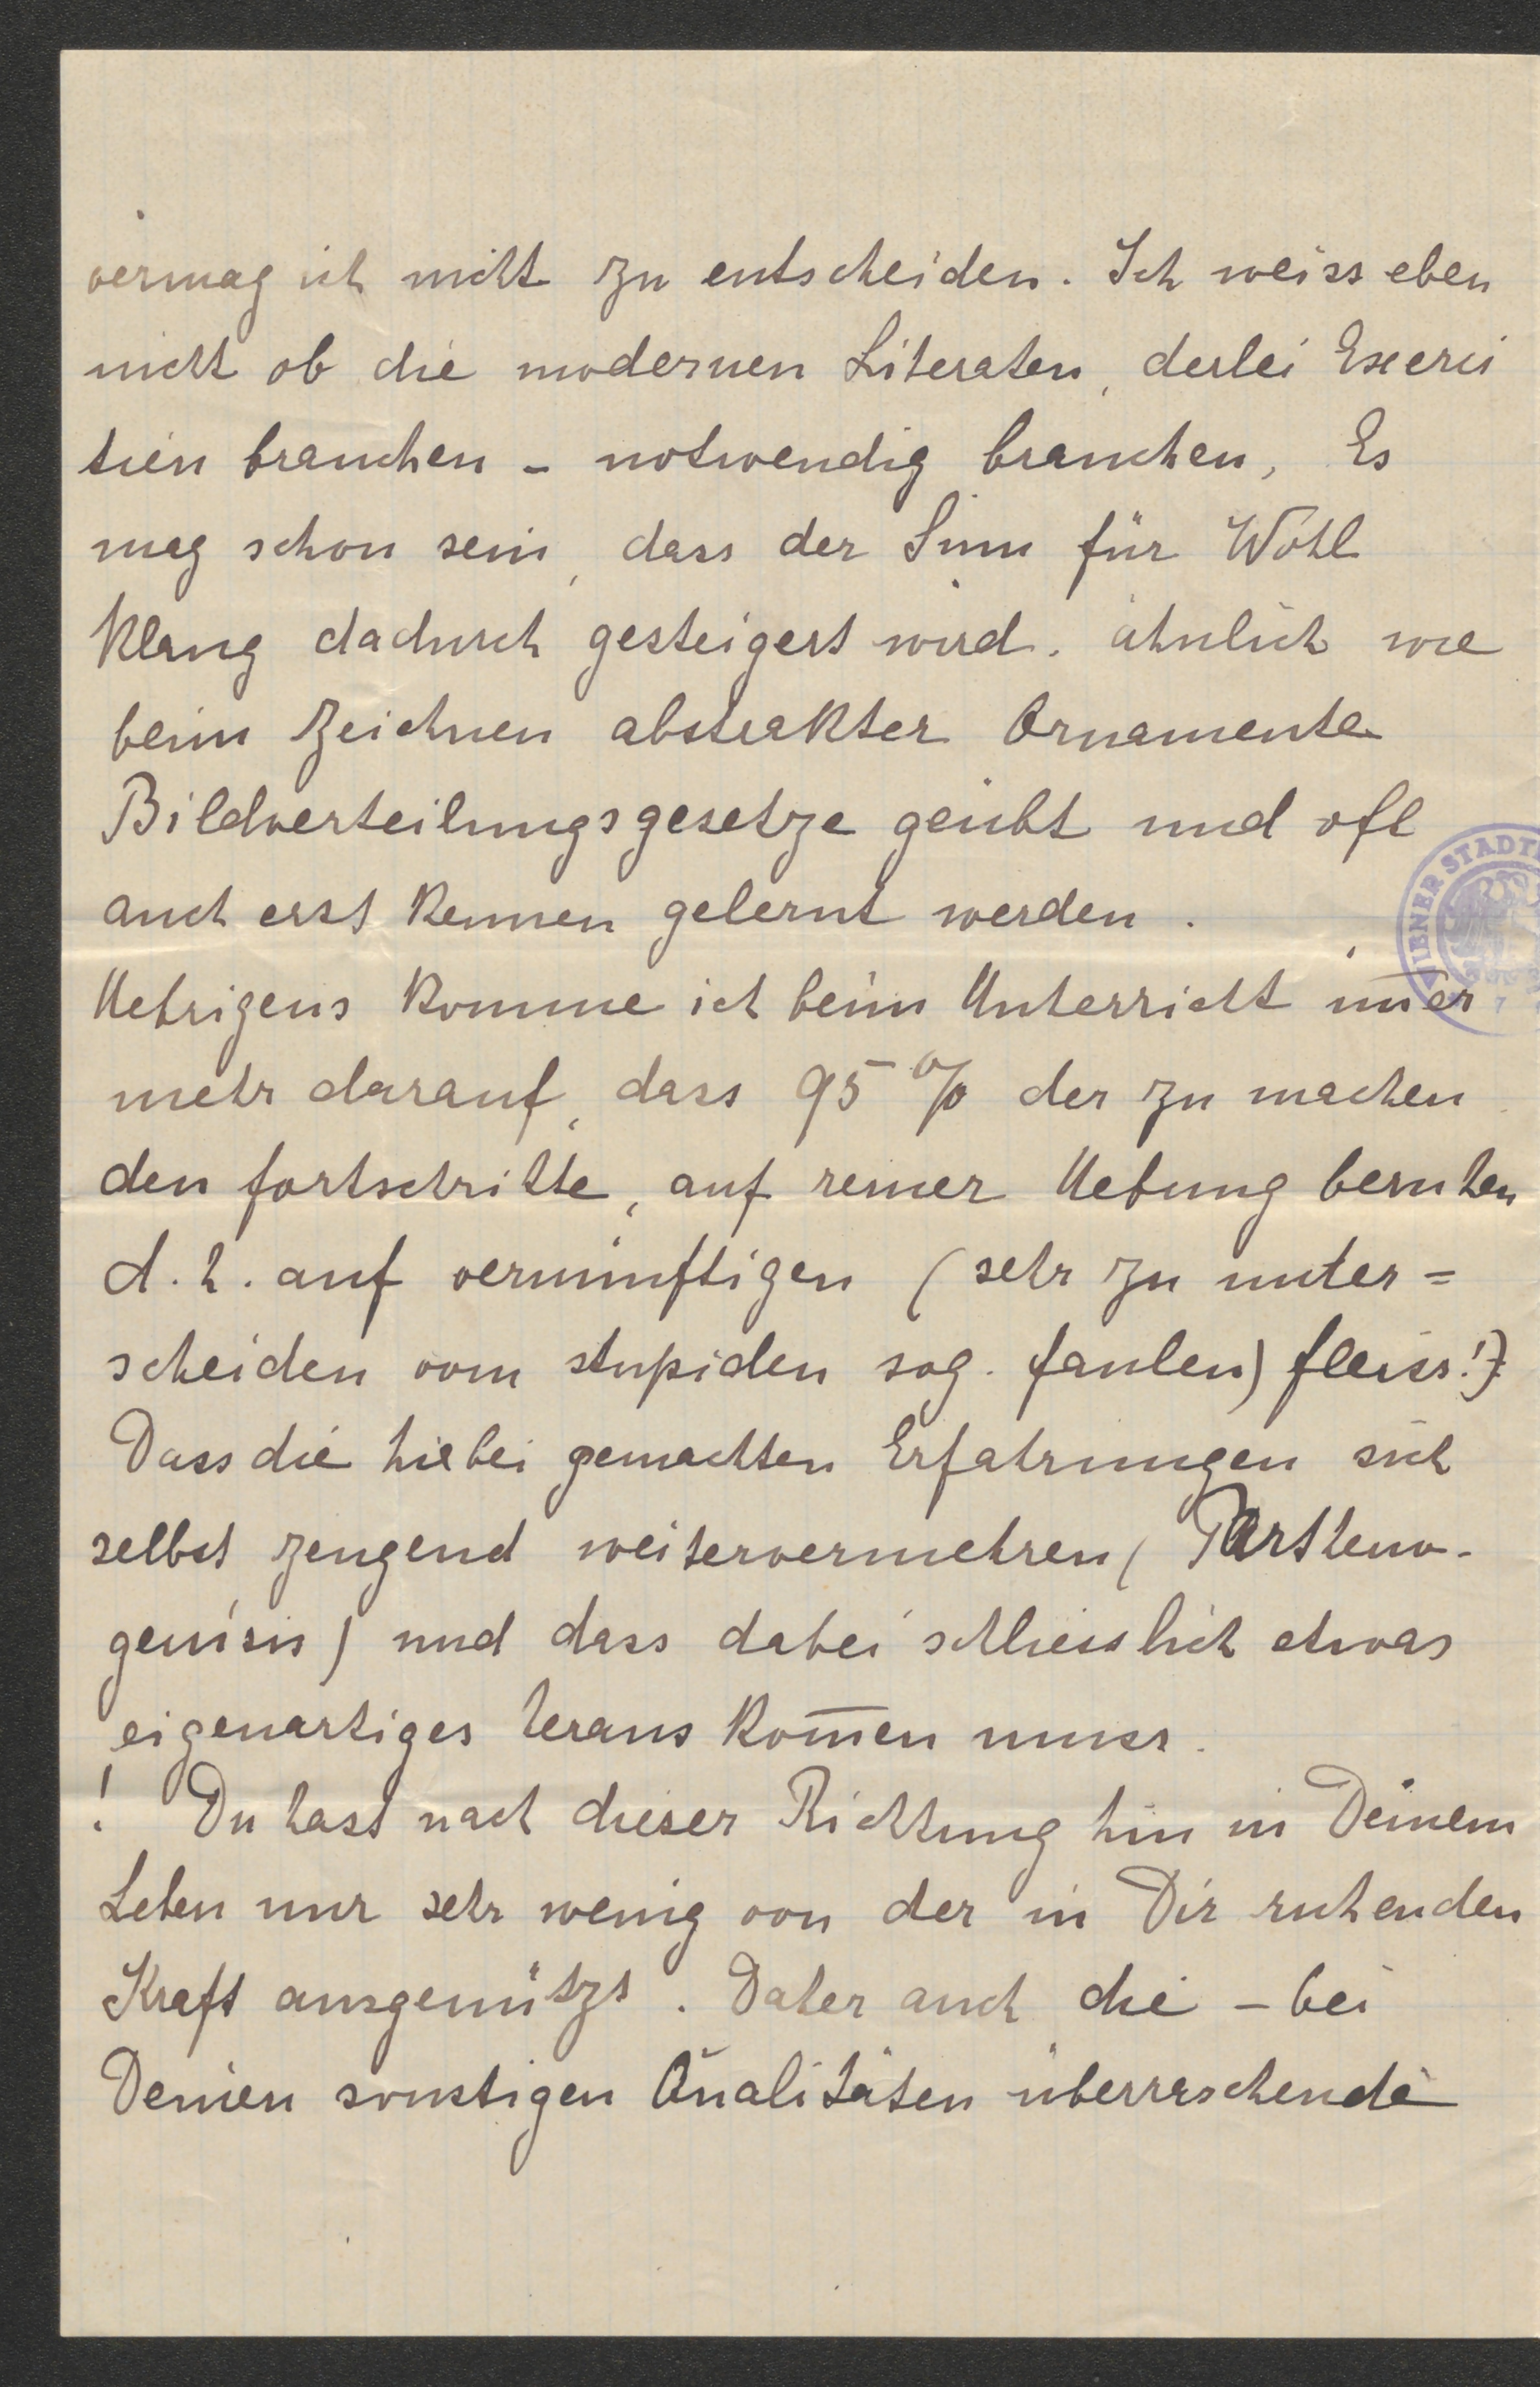 vermag ich nicht zu entscheiden. Ich weiss eben
nicht ob die modernen Literaten, derlei Exerci
tien brauchen - notwendig brauchen, Es
mag schon sein, dass der Sinn für Wohl
klang dadurch gesteigert wird. ähnlich wie
beim Zeichnen abstrakter Ornamente
Bildverteilungsgesetze geübt und oft
auch erst kennen gelernt werden.
Uebrigens komme ich beim Unterricht im̅er
mehr darauf, dass 95 % der zu machen
den fortschritte, auf reiner Uebung beruhen
d. h. auf vernünftigen (sehr zu unter=
scheiden vom stupiden sog. faulen) fleiss!)
Dass die hiebei gemachten Erfahrungen sich
selbst zeugend weitervermehren (Partheno-
genisis) und dass dabei schliesslich etwas
eigenartiges heraus kom̅en muss.
! Du hast nach dieser Richtung hin in Deinem
Leben nur sehr wenig von der in Dir ruhenden
Kraft ausgenützt. Daher auch die - bei
Deinen sonstigen Qualitäten überraschende
WIENER STADT